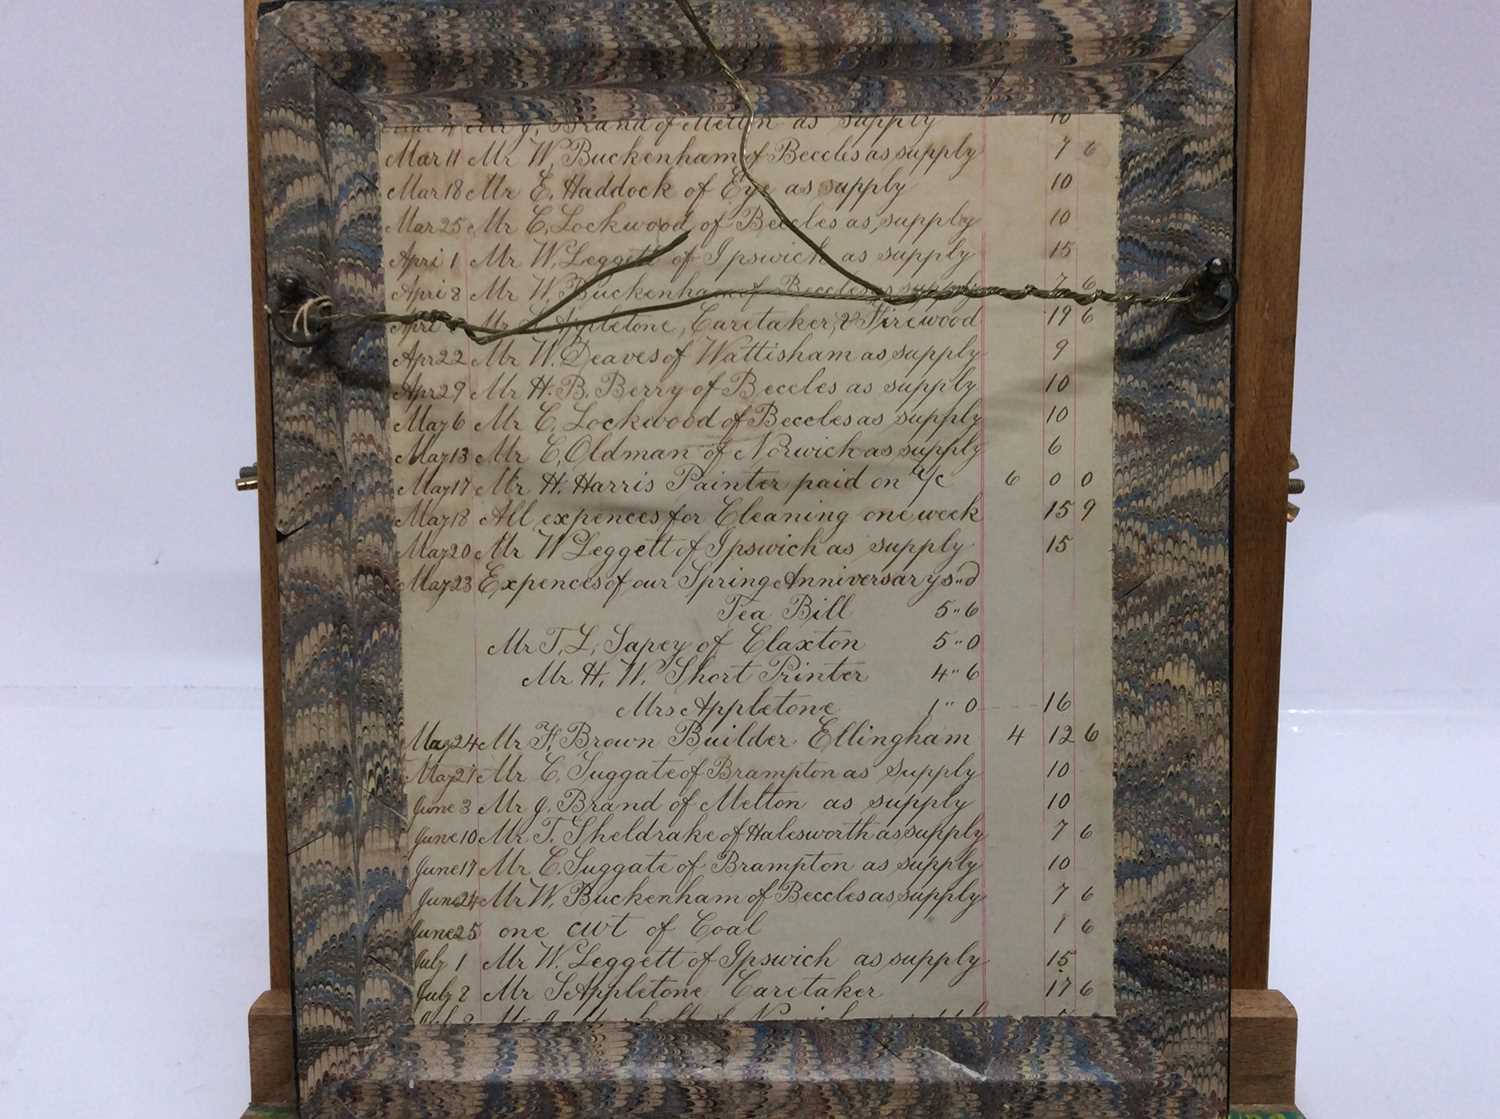 Mr J. Brand of Melton as supply 10
Mar 11 Mr W. Buckenham of Beccles as supply 7 6
Mar 18 Mr E. Haddock of Eye as supply 10
Mar 25 Mr C. Lockwood of Beccles as supply 10
Apri 1 Mr W. Leggett of Ipswich as supply 15
Apri 8 Mr W. Buckenham of Beccles as supply 7 6
Apri Mr Appletone, Caretaker, & Firewood 19 6
Apr 22 Mr W. Deaves of Wattisham as supply 9
Apr 29 Mr H. B. Berry of Beccles as supply 10
May 6 Mr C. Lockwood of Beccles as supply 10
May 13 Mr C. Oldman of Norwich as supply 6
May 17 Mr H. Harris Painter paid on 6 0 0
May 18 All expences for Cleaning one week 15 9
May 20 Mr W Leggett of Ipswich as supply 15
May 23 Expences of our Spring Anniversary s"d
Tea Bill 5"6
Mr T. L. Sapey of Claxton 5"0
Mr H. W. Short Printer 4"6
Mrs Appletone 1"0 16
May 24 Mr F. Brown Builder Ellingham 4 12 6
May 27 Mr C. Suggate of Brampton as supply 10
June 3 Mr J. Brand of Melton as supply 10
June 10 Mr T. Sheldrake of Halesworth as supply 7 6
June 17 Mr C. Suggate of Brampton as supply 10
June 24 Mr W. Buckenham of Beccles as supply 7 6
June 25 one cwt of Coal 1 6
July 1 Mr W. Leggett of Ipswich as supply 15
July 2 Mr S Appletone Caretaker 17 6